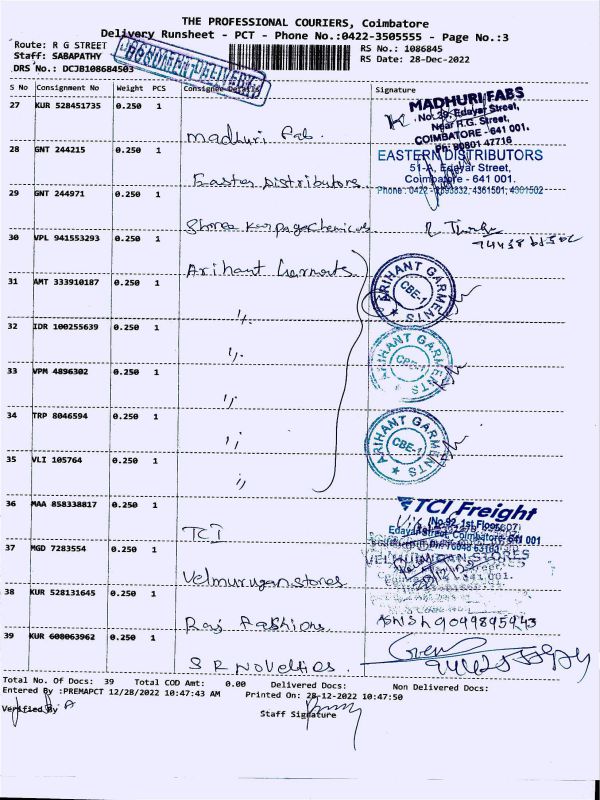 THE PROFESSIONAL COURIERS, Coimbatore
Delivery Runsheet - PCT - Phone No.:0422-3505555 - Page No.:3
Route: R G STREET
RS No.: 1086845
Staff: SABAPATHY
RS Date: 28-Dec-2022
DRS No.: DCJB108684503
DOCUMENT DELIVERY
S No Consignment No Weight PCS Consignee Details Signature
27 KUR 528451735 0.250 1 Madhuri Fab.
MADHURI FABS
No. 39, Edayar Street,
Near R.G. Street,
COIMBATORE - 641 001.
28 GNT 244215 0.250 1 Easter Distributors
EASTERN DISTRIBUTORS
51-A, Edayar Street,
Coimbatore - 641 001.
29 GNT 244971 0.250 1
30 VPL 941553293 0.250 1 Arihant Garments
31 AMT 333910187 0.250 1 ",
ARIHANT GARMENTS
CBE-1
32 IDR 100255639 0.250 1 ",
ARIHANT GARMENTS
CBE-1
33 VPM 4896302 0.250 1 ",
34 TRP 8046594 0.250 1 ",
ARIHANT GARMENTS
CBE-1
35 VLI 105764 0.250 1 ",
36 MAA 858338817 0.250 1 TCI
TCI Freight
No.92, 1st Floor
Edayar Street, Coimbatore-641 001
37 MGD 7283554 0.250 1 Velmurugan stores
VELMURUGAN STORES
38 KUR 528131645 0.250 1 Raj Fashions
39 KUR 608063962 0.250 1 S R Novelties.
Total No. Of Docs: 39 Total COD Amt: 0.00 Delivered Docs: Non Delivered Docs:
Entered By :PREMAPCT 12/28/2022 10:47:43 AM Printed On: 28-12-2022 10:47:50
Verified By
Staff Signature